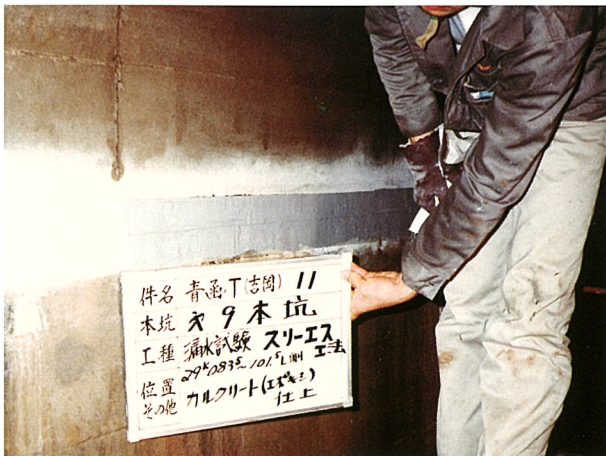 件名 青函T(吉岡) 11
本坑 才9本坑
工種 漏水試験 スリーエス工法
位置 29k083s~101.5L側
その他 カルクリート(エポキシ)仕上